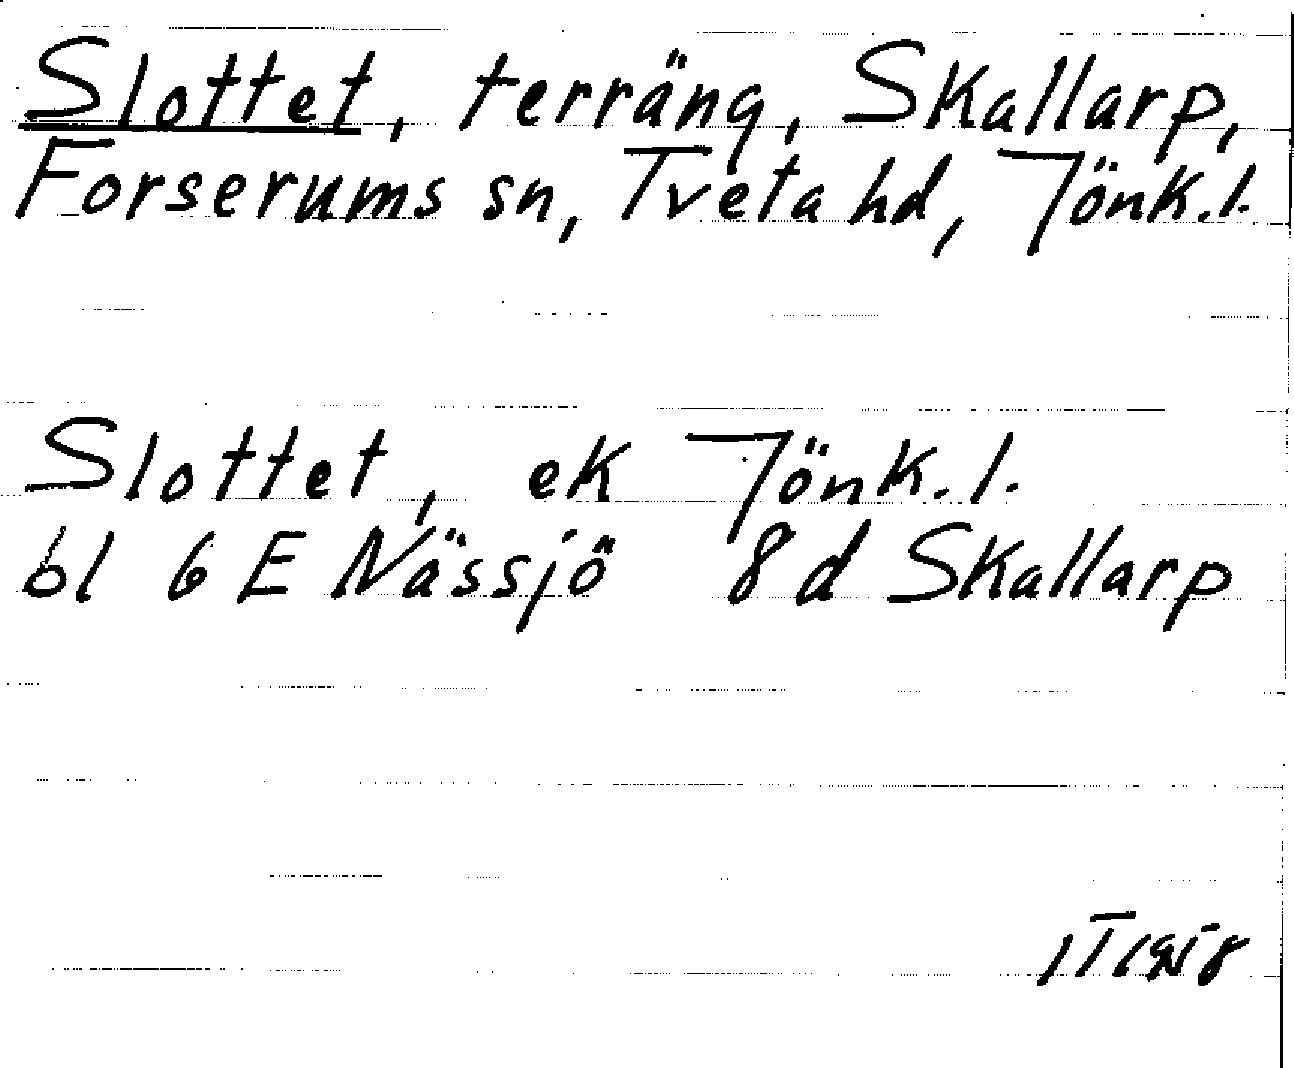 Slottet, terräng, Skallarp,
Forserums sn, Tveta hd, Jönk.l.
Slottet, ek Jönk.l.
bl 6 E Nässjö 8 d Skallarp